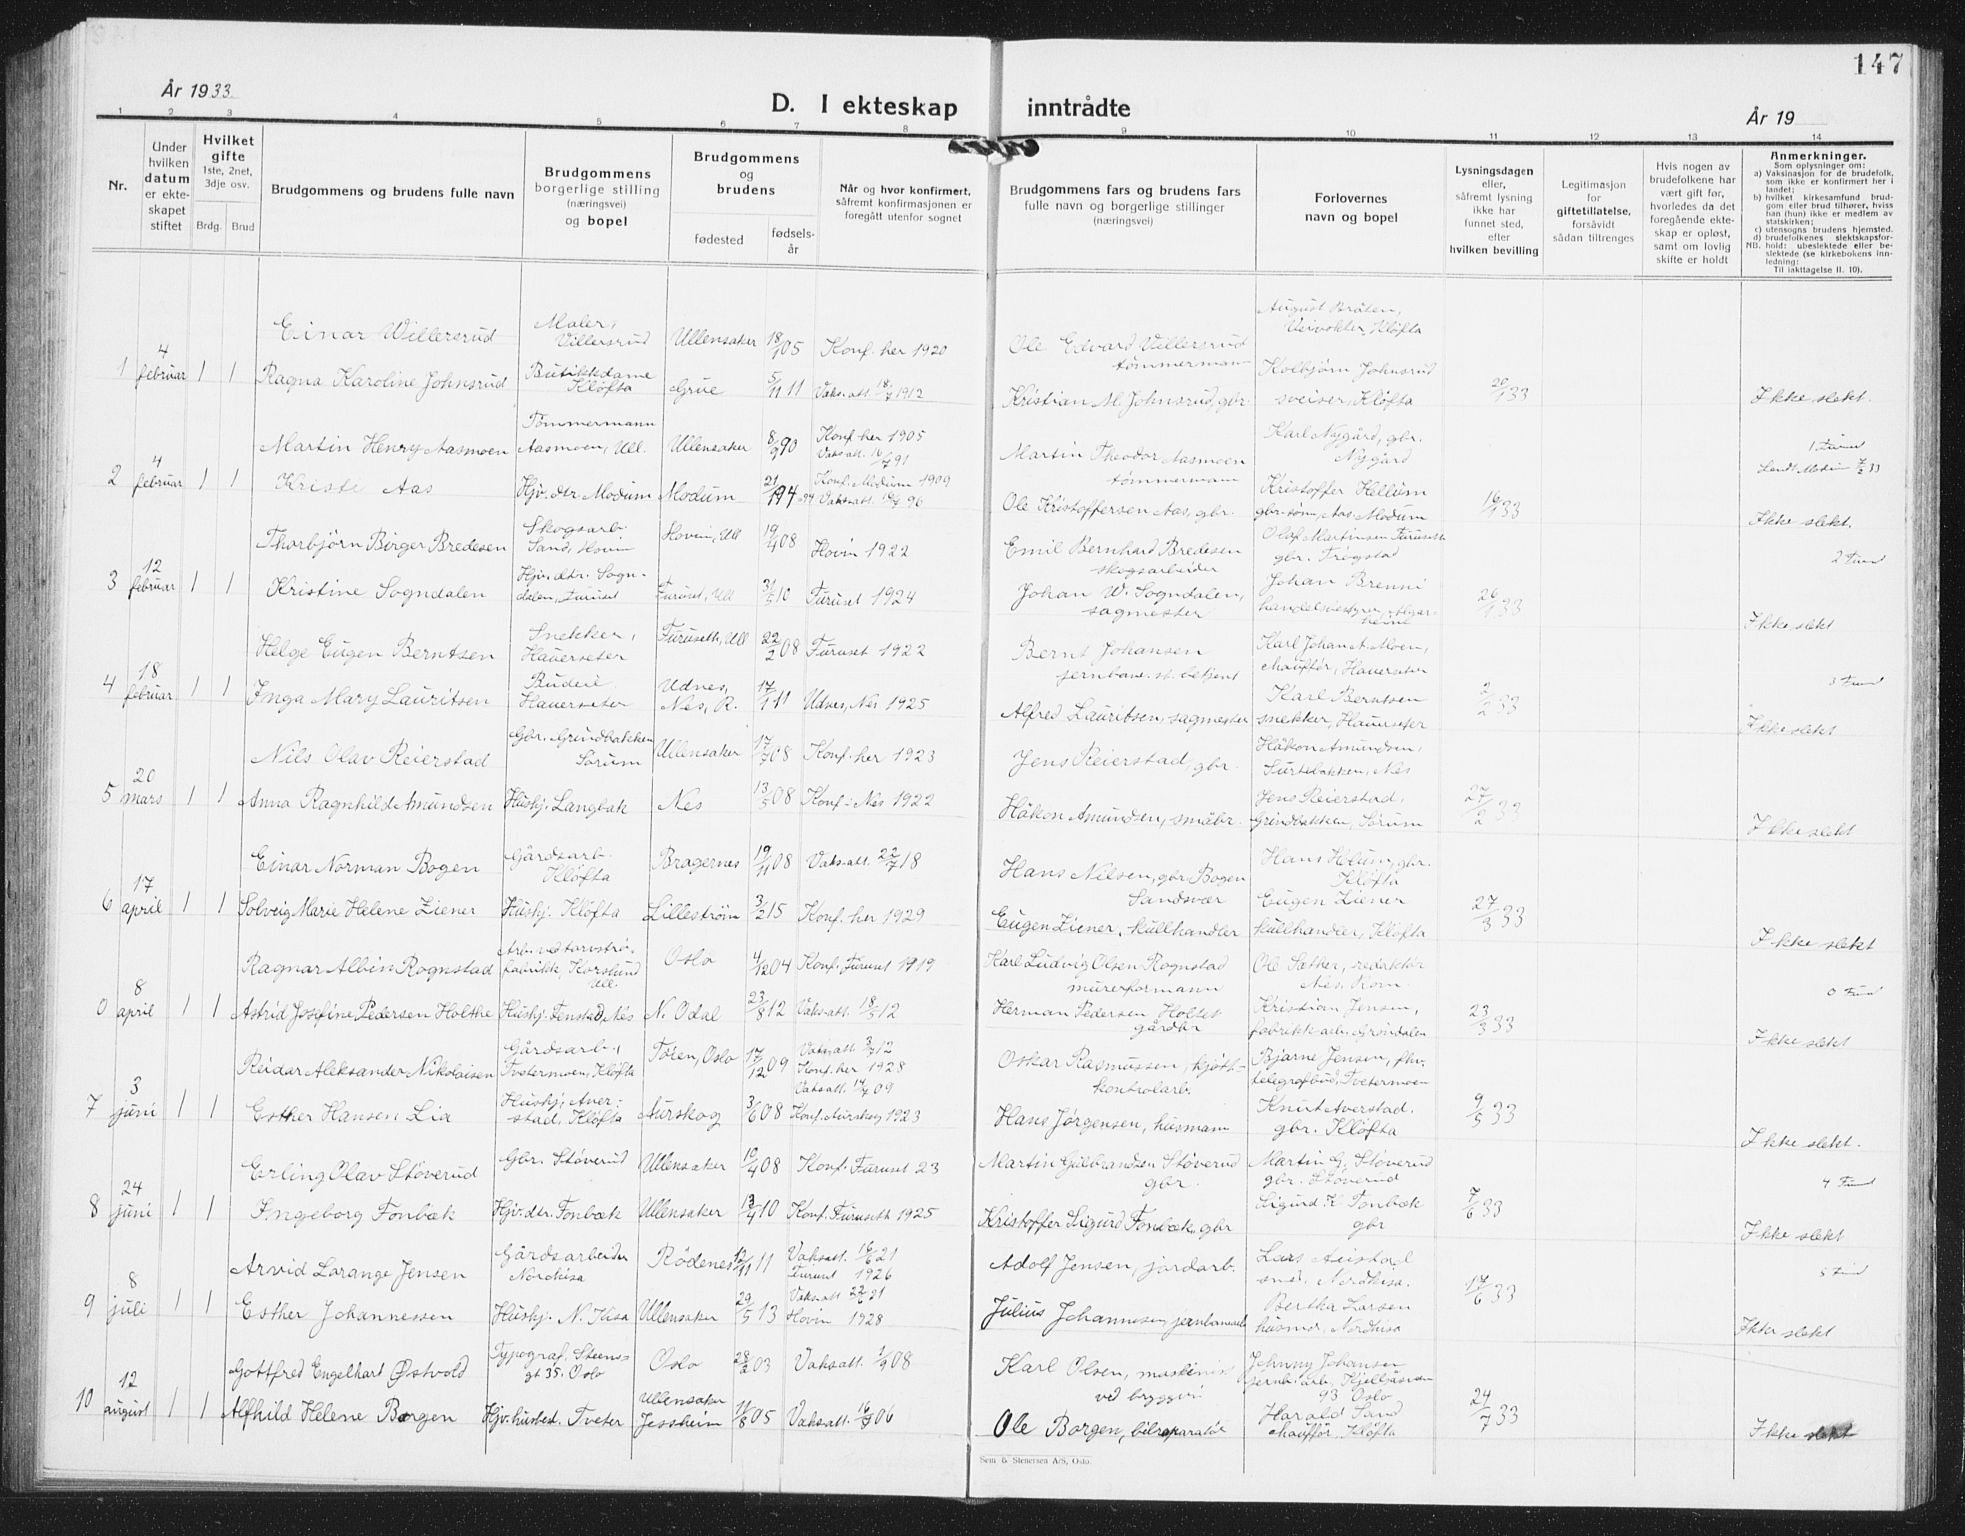 147
År 1933
D. I ekteskap inntrådte
År 19
1 2 3 4 5 6 7 8 9 10 11 12 13 14
Nr.
Under hvilken datum er ekteskapet stiftet
Hvilket gifte 1ste, 2net, 3dje osv.
Brdg. Brud
Brudgommens og brudens fulle navn
Brudgommens borgerlige stilling (næringsvei) og bopel
Brudgommens og brudens
fødested
fødsels-år
Når og hvor konfirmert, såfremt konfirmasjonen er foregått utenfor sognet
Brudgommens fars og brudens fars fulle navn og borgerlige stillinger (næringsvei)
Forlovernes navn og bopel
Lysningsdagen eller, såfremt lysning ikke har funnet sted, efter hvilken bevilling
Legitimasjon for giftetillatelse, forsåvidt sådan tiltrenges
Hvis nogen av brudefolkene har vært gift før, hvorledes da det foregående ekteskap er opløst, samt om lovlig skifte er holdt
Anmerkninger.
Som oplysninger om:
a) Vaksinasjon for de brudefolk, som ikke er konfirmert her i landet;
b) hvilket kirkesamfund brudgom eller brud tilhører, hviss han (hun) ikke er medlem av statskirken;
c) utensogns brudens hjemsted.
d) brudefolkenes slektskapsforhold: ubeslektede eller beslektede (se kirkebokens innledning:
NB.
Til iakttagelse II. 10).
1 4 februar 1 1
Einar Willersrud
Maler, Villersrud
Ullensaker 18/1 05 Konf. her 1920
Ole Edvard Villersrud tømmermann
August Bråten, Kløfta
Ragna Karoline Johnsrud
Butikkdame Kløfta
Grue 5/11 11 Vaks.att. 18/7 1912
Kristian M. Johnsrud, gbr.
Kolbjørn Johnsrud sveiser, Kløfta
20/1 33
Ikke slekt.
2 4 februar 1 1
Martin Henry Aasmoen
Tømmermann Aasmoen, Ull.
Ullensaker 8/9 90 Konf. her 1905
Vaksatt. 16/7 91
Martin Theodor Aasmoen tømmermann
Karl Nygård, gbr. Nygård
Kriste Aas
Hjv. dtr. Modum
Modum 21/1 94 Konf. Modum 1909
Ole Kristoffersen Aas, gbr.
Kristoffer Hellum Aas Modum
16/1 33
Ikke slekt.
3 12 februar 1 1
Thorbjørn Birger Bredesen
Skogsarb. Sand, Hovin
Hovin, Ull 19/4 08 Hovin 1922
Emil Bernhard Bredesen skogsarbeider
Olaf Martinsen Furuseth gbr. Trøgstad
2 Fund
Kristine Sogndalen
Hjv. dtr. Sogndalen, Furuset
Furuset, Ull 31/5 10 Furuset 1924
Johan W. Sogndalen, sagmester
Johan Brenni
26/1 33
Ikke slekt
4 18 februar 1 1
Helge Eugen Berntsen
Snekker, Hauerseter
Furuseth, Ull 22/2 08 Furuset 1922
Bernt Johansen jernbane. st. betjent
Karl Johan A. Moen, chauffør, Hauerseter
3 Fund
Inga Mary Lauritsen
Budeie Hauerseter
Udnes, Nes, R. 17/1 11 Udnes, Nes 1925
Alfred Lauritsen, sagmester
Karl Berntsen snekker, Hauerseter
2/2 33
Ikke slekt
5 20 mars 1 1
Nils Olav Reierstad
Gbr. Grindbakken Sørum
Ullensaker 17/7 08 Konf. her 1923
Jens Reierstad, gbr.
Håkon Amundsen, Nes
Anna Ragnhild Amundsen
Hushj. Langbak
Nes 13/5 08 Konf. i Nes 1922
Håkon Amundsen, småbr.
Jens Reierstad, Grindbakken, Sørum
27/2 33
Ikke slekt
6 17 april 1 1
Einar Norman Bogen
Gårdsarb. Kløfta
Bragernes 19/11 08 Vaks.att. 22/7 18
Hans Nilsen, gbr. Bogen Sandsvær
Hans Holum, gbr. Kløfta
Solveig Marie Helene Ziener
Hushj. Kløfta
Lillestrøm 3/2 15 Konf. her 1929
Eugen Ziener, kullhandler
Eugen Ziener kullhandler, Kløfta
27/3 33
Ikke slekt
0 8 april 1 1
Ragnar Albin Rognstad
Arb. ved torvstrøfabrikk, Ull.
Oslo 4/12 04 Konf. Furuset 1919
Karl Ludvig Olsen Rognstad murerformann
Ole Sæther, redaktør Nes, Rom.
0 Fund
Astrid Josefine Pedersen Holthe
Hushj. Fenstad, Nes
N. Odal 23/8 12 Vaks.att. 18/5 12
Herman Pedersen Holtet gårdbr
Kristian Jensen, fabrikk.arb.
23/3 33
Ikke slekt
7 3 juni 1 1
Reidar Aleksander Nikolaisen
Gårdsarb., Tvetermoen, Kløfta
Tøien, Oslo 17/12 09 Konf. her 1928
Oskar Rasmussen, kjøttkontrolarb.
Bjarne Jensen, fhv. telegrafbud, Tvetermoen
Esther Hansen Lia
Hushj. Averstad, Kløfta
Aurskog 3/6 08 Konf. Aurskog 1923
Hans Jørgensen, husmann
Knut Averstad. gbr. Kløfta
9/5 33
Ikke slekt.
8 24 juni 1 1
Erling Olav Støverud
Gbr. Støverud
Ullensaker 19/4 08 Konf. Furuset 23
Martin Gulbrandsen Støverud gbr.
Martin G. Støverud gbr. Støverud
4 Fund
Ingeborg Fonbæk
Hjv. dtr. Fonbæk
Ullensaker 13/4 10 Konf. Furuseth 1925
Kristoffer Sigurd Fonbæk, gbr
Sigurd K. Fonbæk gbr
7/6 33
Ikke slekt
9 8 juli 1 1
Arvid Lorange Jensen
Gårdsarbeider Nordkisa
Rødenes 12/11 11 Vaksatt. 16/6 21
Furuset 1926
Adolf Jensen, jordarb.
Lars Nordkisa.
5 Fund
Esther Johannessen
Hushj. N. Kisa
Ullensaker 29/5 13 Vaksatt 22/6 21
Hovin 1928
Julius Johannesen, jernbanearb
Bertha Larsen Nordkisa
17/6 33
Ikke slekt
10 12 august 1 1
Gottfred Engelhart Østvold
Typograf. Steensgt 35. Oslo
Oslo 28/2 03 Vaksatt. 1/9 08
Karl Olsen, maskinist ved bryggeri
Johnny Johansen jernb. arb. 93 Oslo
Alfhild Helene Borgen
Hjv. husbest. Tveter
Ullensaker Jessheim 11/8 05 Vaksatt. 16/9 06
Ole Borgen, bilreparatør
Harald Sand chauffør, Kløfta
24/7 33
Ikke slekt
Sem & Stenersen A/S, Oslo.